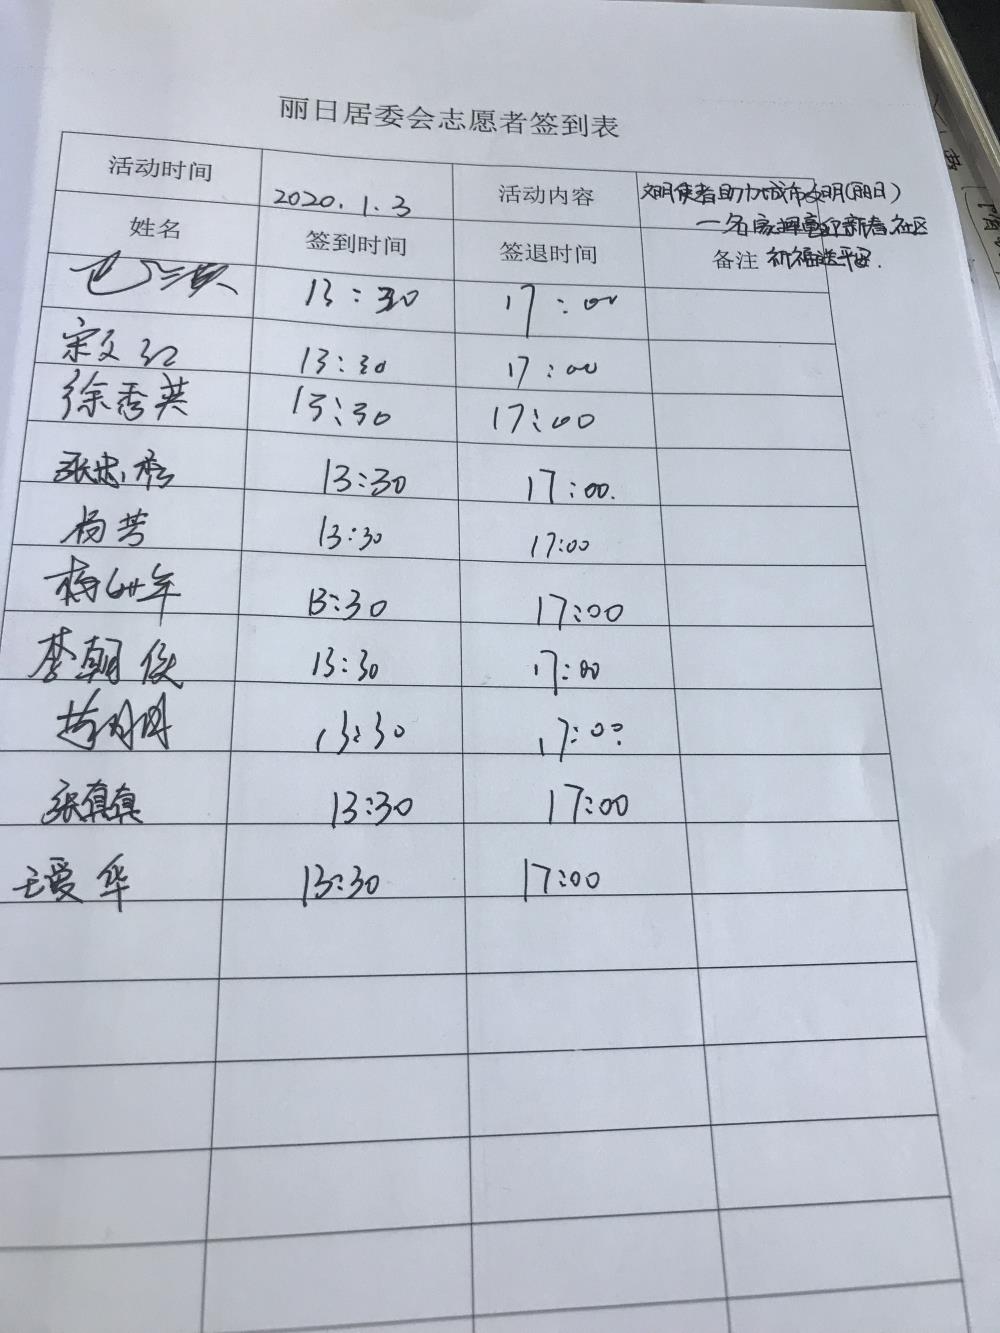 丽日居委会志愿者签到表
活动时间 2020.1.3 活动内容 文明使者助力城市文明(丽日)
一名家挥毫迎新春 社区
祈福送平安.
姓名 签到时间 签退时间 备注
13:30 17:00
宋文红 13:30 17:00
徐秀英 13:30 17:00
张忠秀 13:30 17:00.
杨芳 13:30 17:00
梅 年 13:30 17:00
李朝俊 13:30 17:00
13:30 17:00
张真真 13:30 17:00
王爱华 13:30 17:00